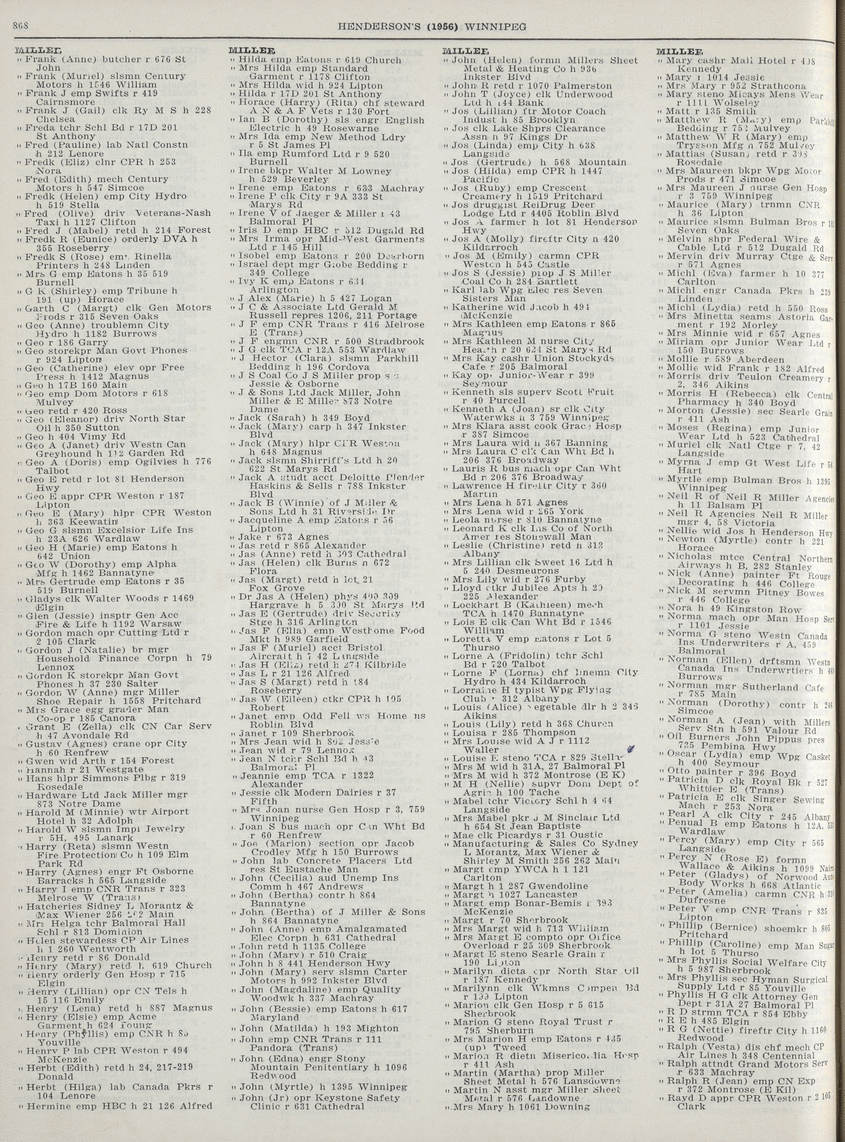 868
HENDERSON'S (1956) WINNIPEG
MILLER
" Frank (Anne) butcher r 676 St
John
" Frank (Muriel) slsmn Century
Motors h 1546 William
" Frank J emp Swifts r 419
Cairnsmore
" Frank J (Gail) clk Ry M S h 228
Chelsea
" Freda tchr Schl Bd r 17D 201
St Anthony
" Fred (Pauline) lab Natl Constn
h 212 Lenore
" Fredk (Eliz) clnr CPR h 253
Nora
" Fred (Edith) mech Century
Motors h 547 Simcoe
" Fredk (Helen) emp City Hydro
h 519 Stella
" Fred (Olive) driv Veterans-Nash
Taxi h 1127 Clifton
" Fred J (Mabel) retd h 214 Forest
" Fredk R (Eunice) orderly DVA h
355 Roseberry
" Fredk S (Rose) emp Rinella
Printers h 248 Linden
" Mrs G emp Eatons h 35 519
Burnell
" G K (Shirley) emp Tribune h
191 (up) Horace
" Garth C (Margt) clk Gen Motors
Prods r 315 Seven Oaks
" Geo (Anne) troublemn City
Hydro h 1182 Burrows
" Geo r 186 Garry
" Geo storekpr Man Govt Phones
r 924 Lipton
" Geo (Catherine) elev opr Free
Press h 1412 Magnus
" Geo h 17B 160 Main
" Geo emp Dom Motors r 618
Mulvey
" Geo retd r 420 Ross
" Geo (Eleanor) driv North Star
Oil h 350 Sutton
" Geo h 404 Vimy Rd
" Geo A (Janet) driv Westn Can
Greyhound h 112 Garden Rd
" Geo A (Doris) emp Ogilvies h 776
Talbot
" Geo E retd r lot 81 Henderson
Hwy
" Geo E appr CPR Weston r 187
Lipton
" Geo E (Mary) hlpr CPR Weston
h 363 Keewatin
" Geo G slsmn Excelsior Life Ins
h 23A 626 Wardlaw
" Geo H (Marie) emp Eatons h
642 Union
" Geo W (Dorothy) emp Alpha
Mfg h 1462 Bannatyne
" Mrs Gertrude emp Eatons r 35
519 Burnell
" Gladys clk Walter Woods r 1469
Elgin
" Glen (Jessie) insptr Gen Acc
Fire & Life h 1192 Warsaw
" Gordon mach opr Cutting Ltd r
2 105 Clark
" Gordon J (Natalie) br mgr
Household Finance Corpn h 79
Lennox
" Gordon K storekpr Man Govt
Phones h 37 230 Salter
" Gordon W (Anne) mgr Miller
Shoe Repair h 1558 Pritchard
" Mrs Grace egg grader Man
Co-op r 185 Canora
" Grant E (Zella) clk CN Car Serv
h 47 Avondale Rd
" Gustav (Agnes) crane opr City
h 60 Renfrew
" Gwen wid Arth r 154 Forest
" Hannah r 21 Westgate
" Hans hlpr Simmons Plbg r 319
Rosedale
" Hardware Ltd Jack Miller mgr
873 Notre Dame
" Harold M (Minnie) wtr Airport
Hotel h 32 Adolph
" Harold W slsmn Impl Jewelry
r 5H, 495 Lanark
" Harry (Reta) slsmn Westn
Fire Protection Co h 109 Elm
Park Rd
" Harry (Agnes) engr Ft Osborne
Barracks h 565 Langside
" Harry I emp CNR Trans r 323
Melrose W (Trans)
" Hatcheries Sidney L Morantz &
Max Wiener 256 262 Main
" Mrs Helga tchr Balmoral Hall
Schl r 813 Dominion
" Helen stewardess CP Air Lines
h 1 260 Wentworth
" Henry retd r 86 Donald
" Henry (Mary) retd h 619 Church
" Henry orderly Gen Hosp r 715
Elgin
" Henry (Lillian) opr CN Tels h
15 116 Emily
" Henry (Lena) retd h 887 Magnus
" Henry (Elsie) emp Acme
Garment h 624 Young
" Henry (Phyllis) emp CNR h 85
Youville
" Henry P lab CPR Weston r 494
McKenzie
" Herbt (Edith) retd h 24, 217-219
Donald
" Herbt (Hilga) lab Canada Pkrs r
104 Lenore
" Hermine emp HBC h 21 126 Alfred
MILLER
" Hilda emp Eatons r 619 Church
" Mrs Hilda emp Standard
Garment r 1178 Clifton
" Mrs Hilda wid h 924 Lipton
" Hilda r 17D 201 St Anthony
" Horace (Harry) (Rita) chf steward
A N & A F Vets r 130 Fort
" Ian B (Dorothy) sls engr English
Electric h 49 Rosewarne
" Mrs Ida emp New Method Ldry
r 5 St James Pl
" Ila emp Rumford Ltd r 9 520
Burnell
" Irene bkpr Walter M Lowney
h 529 Beverley
" Irene emp Eatons r 633 Machray
" Irene P clk City r 9A 333 St
Marys Rd
" Irene V of Jaeger & Miller r 43
Balmoral Pl
" Iris D emp HBC r 512 Dugald Rd
" Mrs Irma opr Mid-West Garments
Ltd r 145 Hill
" Isobel emp Eatons r 200 Dearborn
" Israel dept mgr Globe Bedding r
349 College
" Ivy K emp Eatons r 634
Arlington
" J Alex (Marie) h 5 427 Logan
" J C & Associate Ltd Gerald M
Russell repres 1206, 211 Portage
" J F emp CNR Trans r 416 Melrose
E (Trans)
" J F engmn CNR r 500 Stradbrook
" J G clk TCA r 12A 553 Wardlaw
" J Hector (Clara) slsmn Parkhill
Bedding h 196 Cordova
" J S Coal Co J S Miller prop s s
Jessie & Osborne
" J & Sons Ltd Jack Miller, John
Miller & E Miller 873 Notre
Dame
" Jack (Sarah) h 349 Boyd
" Jack (Mary) carp h 347 Inkster
Blvd
" Jack (Mary) hlpr CPR Weston
h 648 Magnus
" Jack slsmn Shirriff's Ltd h 20
622 St Marys Rd
" Jack A studt acct Deloitte Plender
Haskins & Sells r 788 Inkster
Blvd
" Jack B (Winnie) of J Miller &
Sons Ltd h 31 Riverside Dr
" Jacqueline A emp Eatons r 56
Lipton
" Jake r 673 Agnes
" Jas retd r 865 Alexander
" Jas (Anne) retd h 303 Cathedral
" Jas (Helen) clk Burns h 672
Flora
" Jas (Margt) retd h lot 21
Fox Grove
" Dr Jas A (Helen) phys 400 309
Hargrave h 5 300 St Marys Rd
" Jas E (Gertrude) driv Security
Stge h 316 Arlington
" Jas F (Ella) emp Westhome Food
Mkt h 989 Garfield
" Jas F (Muriel) acct Bristol
Aircraft h 7 42 Langside
" Jas H (Eliz) retd h 274 Kilbride
" Jas L r 21 126 Alfred
" Jas S (Margt) retd h 184
Roseberry
" Jas W (Eileen) ctkr CPR h 195
Robert
" Janet emp Odd Fellows Home ns
Roblin Blvd
" Janet r 109 Sherbrook
" Mrs Jean wid h 892 Jessie
" Jean wid r 79 Lennox
" Jean N tchr Schl Bd h 43
Balmoral Pl
" Jeannie emp TCA r 1322
Alexander
" Jessie clk Modern Dairies r 37
Fifth
" Mrs Joan nurse Gen Hosp r 3, 759
Winnipeg
" Joan S bus mach opr Can Wht Bd
r 60 Renfrew
" Joe (Marion) section opr Jacob
Crodley Mfg h 150 Burrows
" John lab Concrete Placers Ltd
res St Eustache Man
" John (Cecilia) aud Unemp Ins
Comm h 467 Andrews
" John (Bertha) contr h 864
Bannatyne
" John (Bertha) of J Miller & Sons
h 864 Bannatyne
" John (Anne) emp Amalgamated
Elec Corpn h 631 Cathedral
" John retd h 1135 College
" John (Mary) r 510 Craig
" John h 8 441 Henderson Hwy
" John (Mary) serv slsmn Carter
Motors h 992 Inkster Blvd
" John (Magdaline) emp Quality
Woodwk h 337 Machray
" John (Bessie) emp Eatons h 617
Maryland
" John (Matilda) h 193 Mighton
" John emp CNR Trans r 111
Pandora (Trans)
" John (Edna) engr Stony
Mountain Penitentiary h 1096
Redwood
" John (Myrtle) h 1395 Winnipeg
" John (Jr) opr Keystone Safety
Clinic r 631 Cathedral
MILLER
" John (Helen) formn Millers Sheet
Metal & Heating Co h 936
Inkster Blvd
" John R retd r 1070 Palmerston
" John T (Joyce) clk Underwood
Ltd h 144 Bank
" Jos (Lillian) ftr Motor Coach
Indust h 85 Brooklyn
" Jos clk Lake Shprs Clearance
Assn h 97 Kings Dr
" Jos (Linda) emp City h 638
Langside
" Jos (Gertrude) h 568 Mountain
" Jos (Hilda) emp CPR h 1447
Pacific
" Jos (Ruby) emp Crescent
Creamery h 1519 Pritchard
" Jos druggist ReiDrug Deer
Lodge Ltd r 4405 Roblin Blvd
" Jos A farmer h lot 81 Henderson
Hwy
" Jos A (Molly) fireftr City n 420
Kildarroch
" Jos M (Emily) carmn CPR
Weston h 545 Castle
" Jos S (Jessie) prop J S Miller
Coal Co h 284 Bartlett
" Karl lab Wpg Elec res Seven
Sisters Man
" Katherine wid Jacob h 494
McKenzie
" Mrs Kathleen emp Eatons r 865
Magnus
" Mrs Kathleen M nurse City
Health r 20 624 St Marys Rd
" Mrs Kay cashr Union Stockyds
Cafe r 205 Balmoral
" Kay opr Junior-Wear r 399
Seymour
" Kenneth sls superv Scott Fruit
r 40 Purcell
" Kenneth A (Joan) sr clk City
Waterwks h 3 759 Winnipeg
" Mrs Klara asst cook Grace Hosp
r 387 Simcoe
" Mrs Laura wid h 367 Banning
" Mrs Laura C clk Can Wht Bd h
206 376 Broadway
" Lauris R bus mach opr Can Wht
Bd r 206 376 Broadway
" Lawrence H fireftr City r 360
Martin
" Mrs Lena h 571 Agnes
" Mrs Lena wid r 265 York
" Leola nurse r 810 Bannatyne
" Leonard K clk Ins Co of North
Amer res Stonewall Man
" Leslie (Christine) retd h 312
Albany
" Mrs Lillian clk Sweet 16 Ltd h
5 240 Desmeurons
" Mrs Lily wid r 276 Furby
" Lloyd ctkr Jubilee Apts h 20
225 Alexander
" Lockhart B (Kathleen) mech
TCA h 1470 Bannatyne
" Lois E clk Can Wht Bd r 1546
William
" Loretta V emp Eatons r Lot 5
Thurso
" Lorne A (Fridolin) tchr Schl
Bd r 720 Talbot
" Lorne F (Lorna) chf linemn City
Hydro h 434 Kildarroch
" Lorraine H typist Wpg Flying
Club r 312 Albany
" Louis (Alice) vegetable dlr h 2 346
Aikins
" Louis (Lily) retd h 368 Church
" Louisa r 285 Thompson
" Mrs Louise wid A J r 1112
Waller
" Louise E steno TCA r 829 Stella
" Mrs M wid h 31A, 27 Balmoral Pl
" Mrs M wid h 372 Montrose (E K)
" M H (Nellie) suprv Dom Dept of
Agric h 100 Tache
" Mabel tchr Victory Schl h 4 64
Langside
" Mrs Mabel pkr J M Sinclair Ltd
h 654 St Jean Baptiste
" Mae clk Picardys r 31 Oustic
" Manufacturing & Sales Co Sydney
L Morantz, Max Wiener &
Shirley M Smith 256 262 Main
" Margt emp YWCA h 1 121
Carlton
" Margt h 1 287 Gwendoline
" Margt h 1027 Lancaster
" Margt emp Bonar-Bemis r 393
McKenzie
" Margt r 70 Sherbrook
" Mrs Margt wid h 713 William
" Mrs Margt E compto opr Office
Overload r 25 309 Sherbrook
" Margt E steno Searle Grain r
190 Lipton
" Marilyn dicta opr North Star Oil
r 187 Kennedy
" Marilynn clk Wkmns Compen Bd
r 190 Lipton
" Marion clk Gen Hosp r 5 615
Sherbrook
" Marion G steno Royal Trust r
795 Sherburn
" Mrs Marion H emp Eatons r 435
(up) Tweed
" Marion R dietn Misericordia Hosp
r 411 Ash
" Martin (Martha) prop Miller
Sheet Metal h 576 Lansdowne
" Martin N asst mgr Miller Sheet
Metal r 576 Landowne
" Mrs Mary h 1061 Downing
MILLER
" Mary cashr Mall Hotel r 408
Kennedy
" Mary r 1014 Jessie
" Mrs Mary r 952 Strathcona
" Mary steno Micays Mens Wear
r 1111 Wolseley
" Matt r 135 Smith
" Matthew R (Mary) emp
Bedding r 752 Mulvey
" Matthew W R (Mary) emp
Trysson Mfg n 752 Mulvey
" Mattias (Susan) retd r 398
Rosedale
" Mrs Maureen bkpr Wpg Motor
Prods r 471 Simcoe
" Mrs Maureen J nurse Gen Hosp
r 3 759 Winnipeg
" Maurice (Mary) trmmn CNR
h 36 Lipton
" Maurice slsmn Bulman Bros r
Seven Oaks
" Melvin shpr Federal Wire &
Cable Ltd r 512 Dugald Rd
" Mervin driv Murray Ctge & Serv
r 571 Agnes
" Michl (Eva) farmer h 10 377
Carlton
" Michl engr Canada Pkrs h 239
Linden
" Michl (Lydia) retd h 550 Ross
" Mrs Minetta seams Astoria Gar-
ment r 192 Morley
" Mrs Minnie wid r 657 Agnes
" Miriam opr Junior Wear Ltd r
150 Burrows
" Mollie r 589 Aberdeen
" Mollie wid Frank r 182 Alfred
" Morris driv Teulon Creamery r
2, 346 Aikins
" Morris H (Rebecca) clk Central
Pharmacy h 340 Boyd
" Morton (Jessie) sec Searle Grain
r 411 Ash
" Moses (Regina) emp Junior
Wear Ltd h 523 Cathedral
" Muriel clk Natl Ctge r 7, 42
Langside
" Myrna J emp Gt West Life r
Hart
" Myrtle emp Bulman Bros h 1395
Winnipeg
" Neil R of Neil R Miller Agencies
h 11 Balsam Pl
" Neil R Agencies Neil R Miller
mgr 4, 58 Victoria
" Nellie wid Jos h Henderson Hwy
" Newton (Myrtle) contr h 221
Horace
" Nicholas mtce Central Northern
Airways h B, 282 Stanley
" Nick (Anne) painter Ft Rouge
Decorating h 446 College
" Nick M servmn Pitney Bowes
r 446 College
" Nora h 49 Kingston Row
" Norma mach opr Man Hosp Ser
r 1101 Jessie
" Norma G steno Westn Canada
Ins Underwriters r A, 459
Balmoral
" Norman (Ellen) drftsmn Westn
Canada Ins Underwrtiers h
Burrows
" Norman mgr Sutherland Cafe
r 785 Main
" Norman (Dorothy) contr h
Simcoe
" Norman A (Jean) with Millers
Serv Stn h 591 Valour Rd
" Oil Burners John Pippus pres
735 Pembina Hwy
" Oscar (Lydia) emp Wpg Casket
h 400 Seymour
" Otto painter r 396 Boyd
" Patricia D clk Royal Bk r 527
Whittier E (Trans)
" Patricia E clk Singer Sewing
Mach r 253 Nora
" Pearl A clk City r 245 Albany
" Penual B emp Eatons h 12A,
Wardlaw
" Percy (Mary) emp City r 565
Langside
" Percy N (Rose E) formn
Wallace & Aikins h 1099
" Peter (Gladys) of Norwood Auto
Body Works h 668 Atlantic
" Peter (Amelia) carmn CNR h
Dufresne
" Peter V emp CNR Trans r 835
Lipton
" Phillip (Bernice) shoemkr h 805
Pritchard
" Phillip (Caroline) emp Man Sugar
h lot 5 Thurso
" Mrs Phyllis Social Welfare City
h 5 987 Sherbrook
" Mrs Phyllis sec Hyman Surgical
Supply Ltd r 85 Youville
" Phyllis H G clk Attorney Gen
Dept r 31A 27 Balmoral Pl
" R D strmn TCA r 854 Ebby
" R E h 485 Elgin
" R G (Nettie) fireftr City h 1160
Redwood
" Ralph (Vesta) dis chf mech CP
Air Lines h 348 Centennial
" Ralph attndt Grand Motors Serv
r 633 Machray
" Ralph R (Jean) emp CN Exp
r 372 Montrose (E Kil)
" Rayd D appr CPR Weston r 2 105
Clark